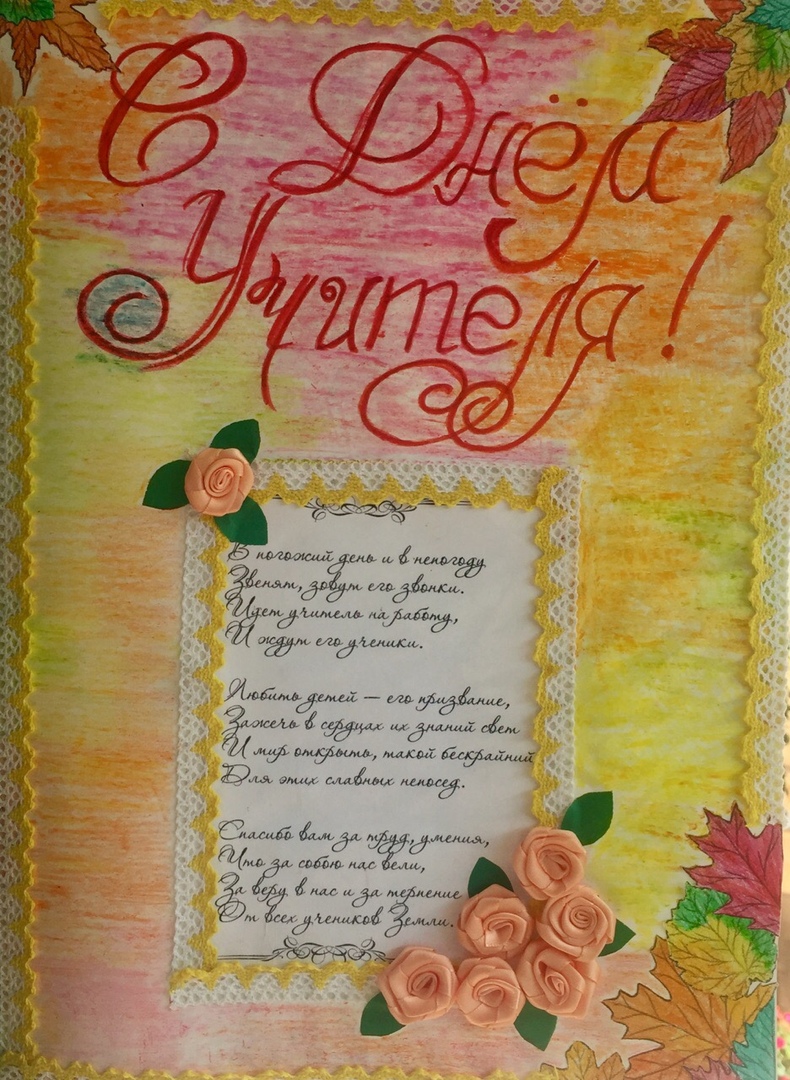 С Днём
Учителя!
В погожий день и в непогоду
Звенят, зовут его звонки.
Идет учитель на работу,
И ждут его ученики.
Любить детей — его призвание,
Зажечь в сердцах их знаний свет
И мир открыть, такой бескрайний
Для этих славных непосед.
Спасибо вам за труд, умения,
Что за собою нас вели,
За веру в нас и за терпение
От всех учеников Земли.